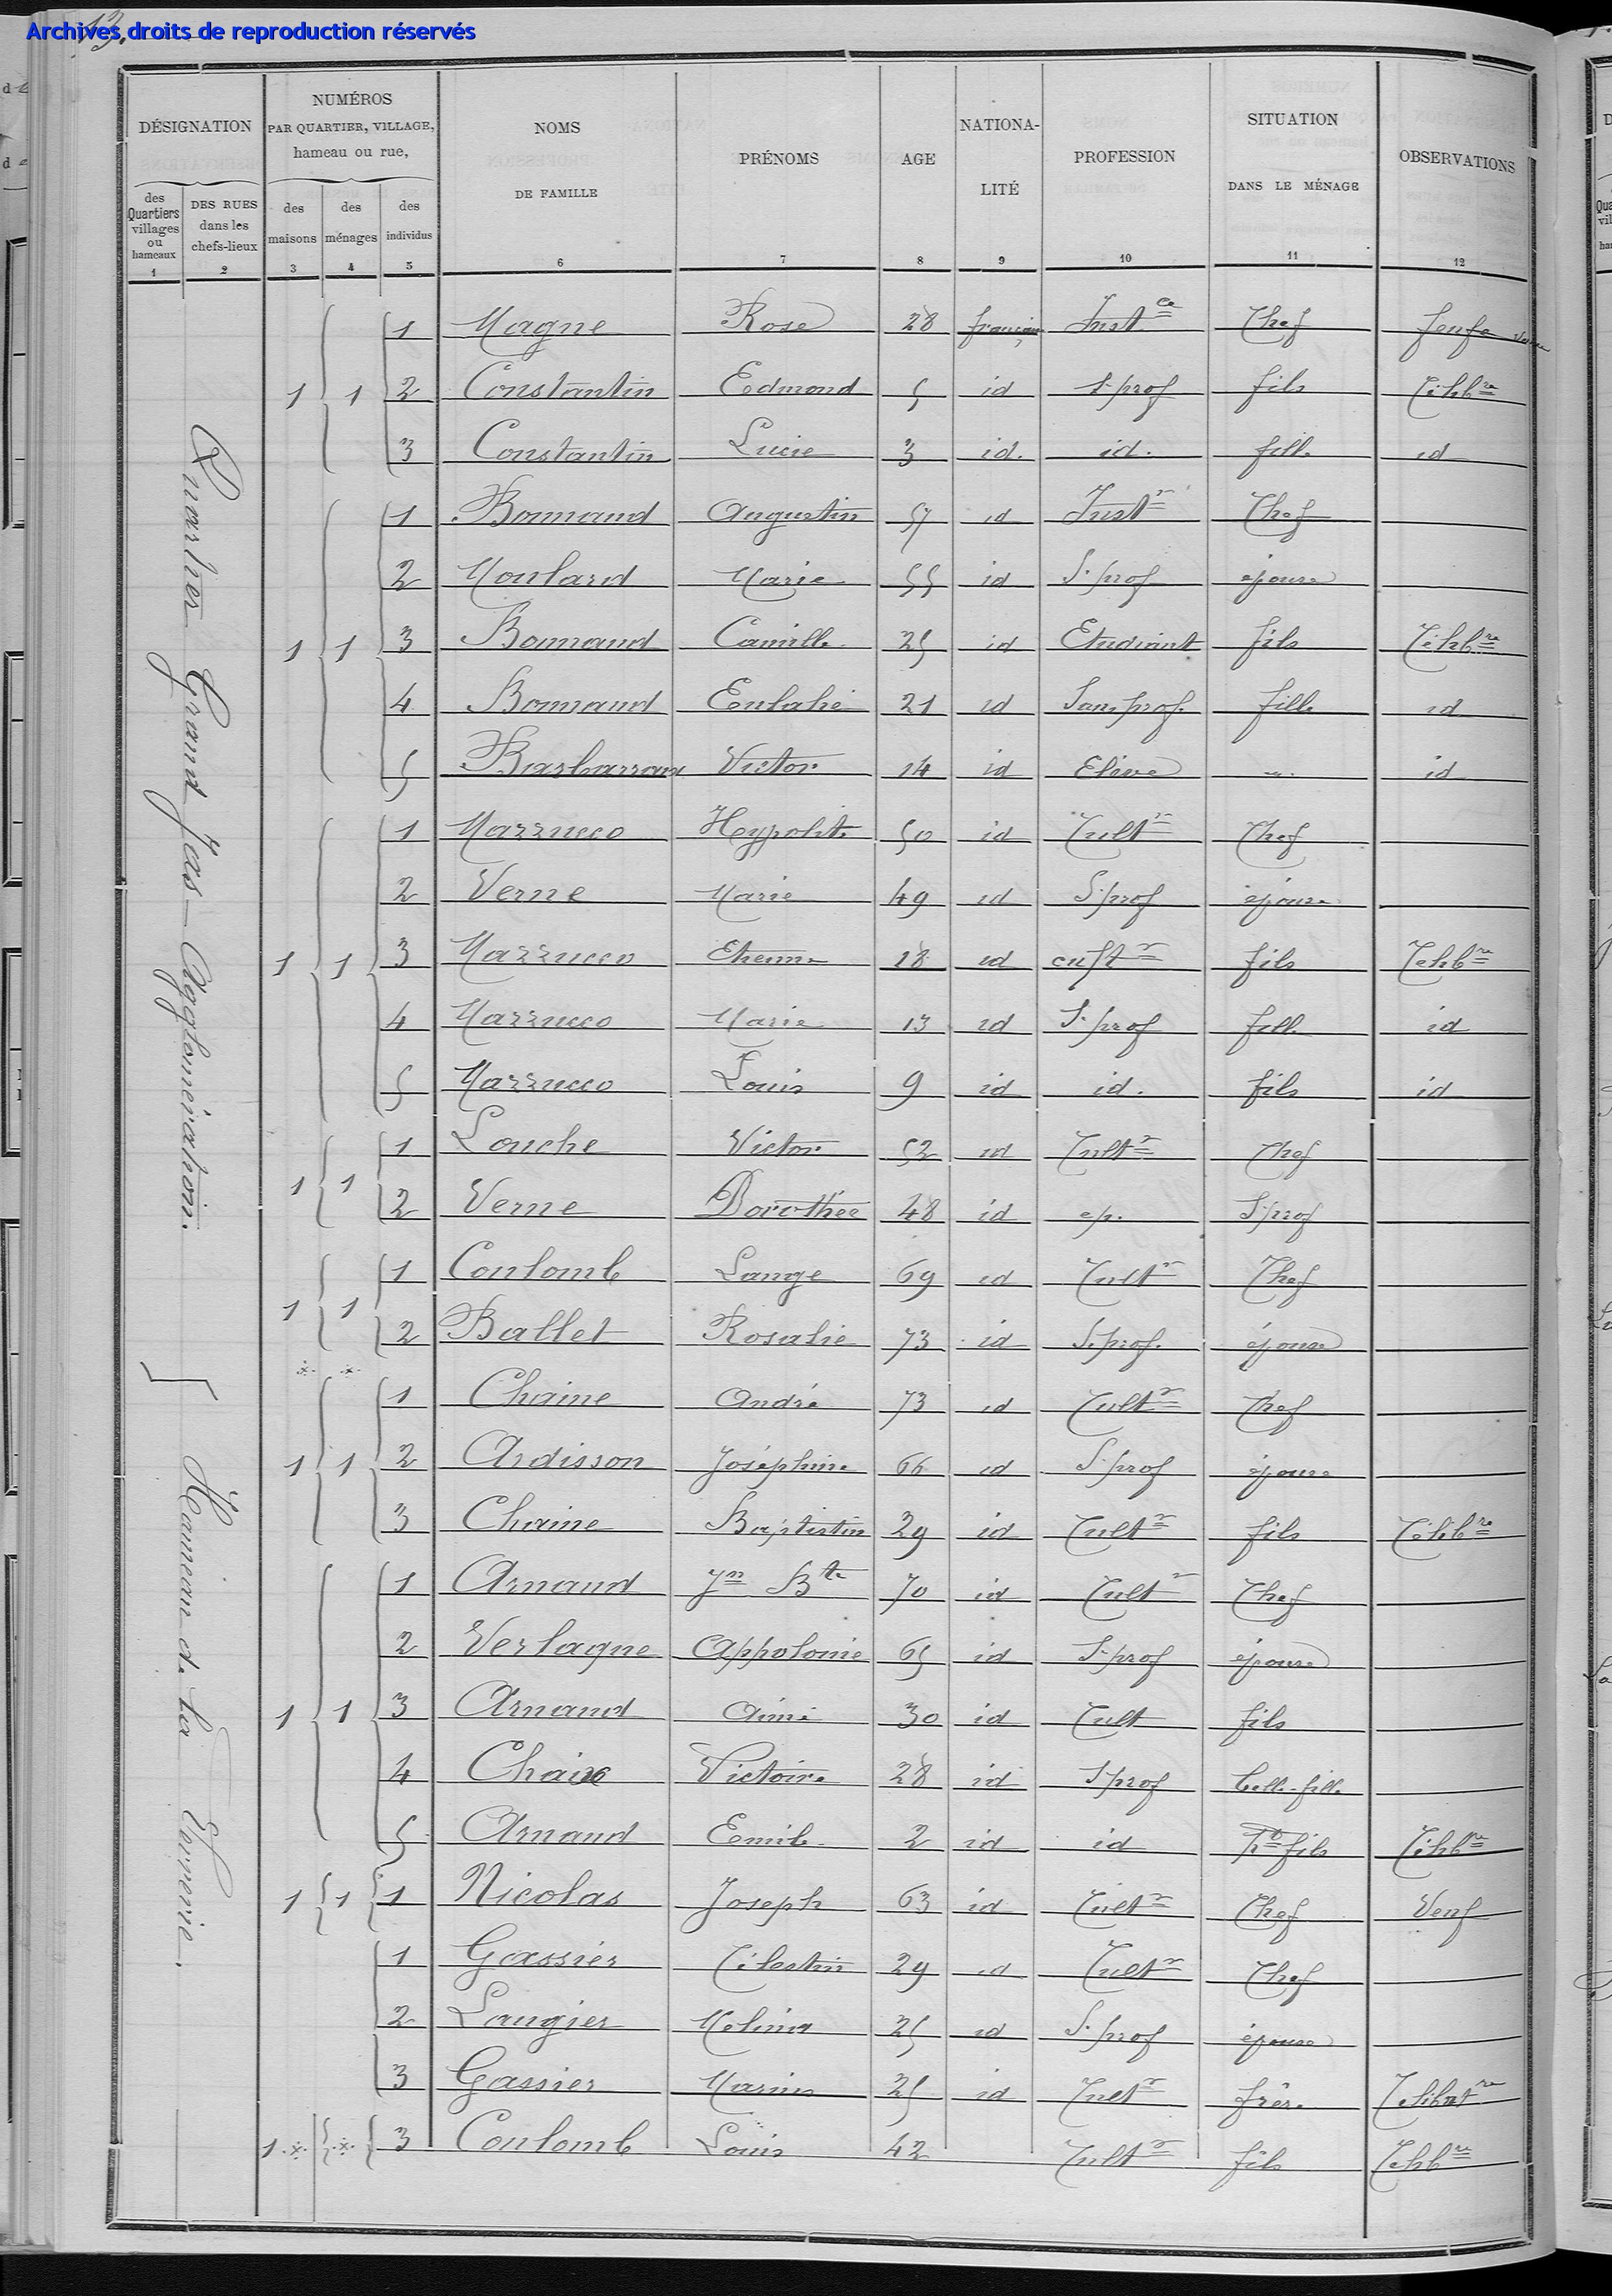 Archives droits de reproduction réservés
13.
DÉSIGNATION
NUMÉROS
PAR QUARTIER, VILLAGE,
hameau ou rue,
NOMS
DE FAMILLE
PRÉNOMS
AGE
NATIONA-
LITÉ
PROFESSION
SITUATION
DANS LE MÉNAGE
OBSERVATIONS
des Quartiers villages ou hameaux
DES RUES dans les chefs-lieux
des maisons
des ménages
des individus
1 2 3 4 5 6 7 8 9 10 11 12
Quartier Grand Jas – Agglomération.
1 Magne Rose 28 française Instce Chef
1 1 2 Constantin Edmond 5 id S. prof fils Célibre
3 Constantin Lucie 3 id. id. fille id
1 Bonnaud Augustin 57 id Instr Chef
2 Moulard Marie 55 id S. prof épouse
1 1 3 Bonnaud Camille 25 id Etudiant fils Célibre
4 Bonnaud Eulalie 21 id Sans prof. fille id
5 Barbarroux Victor 14 id Elève id
1 Mazzucco Heypolite 50 id Cultr Chef
2 Verne Marie 49 id S. prof épouse
1 1 3 Mazzucco Etienne 18 id cultr fils Célibre
4 Mazzucco Marie 13 id S. prof fille id
5 Mazzucco Louis 9 id id. fils id
1 Louche Victor 52 id Cultr Chef
1 1 2 Verne Dorothée 48 id ep. S. prof
1 Coulomb Lange 69 id Cultr Chef
1 1 2 Ballet Rosalie 73 id S. prof. épouse
Hameau de la Verrerie.
1 Chaine André 73 id Cultr Chef
1 1 2 Ardisson Joséphine 66 id S. prof épouse
3 Chaine Baptistin 29 id Cultr fils Célibre
1 Arnaud Jn Bte 70 id Cultr Chef
2 Verlaque Appolonie 65 id S. prof épouse
1 1 3 Arnaud Aimé 30 id Cult fils
4 Chaix Victoire 28 id S prof belle-fille
5 Arnaud Emile 2 id id pt fils Célibre
1 1 1 Nicolas Joseph 63 id Cultr Chef Veuf
1 Gassier Célestin 29 id Cultr Chef
2 Laugier Mélina 25 id S. prof épouse
3 Gassier Marius 25 id Cultr frère Célibatre
1 3 Coulomb Louis 42 Cultr fils Célibre